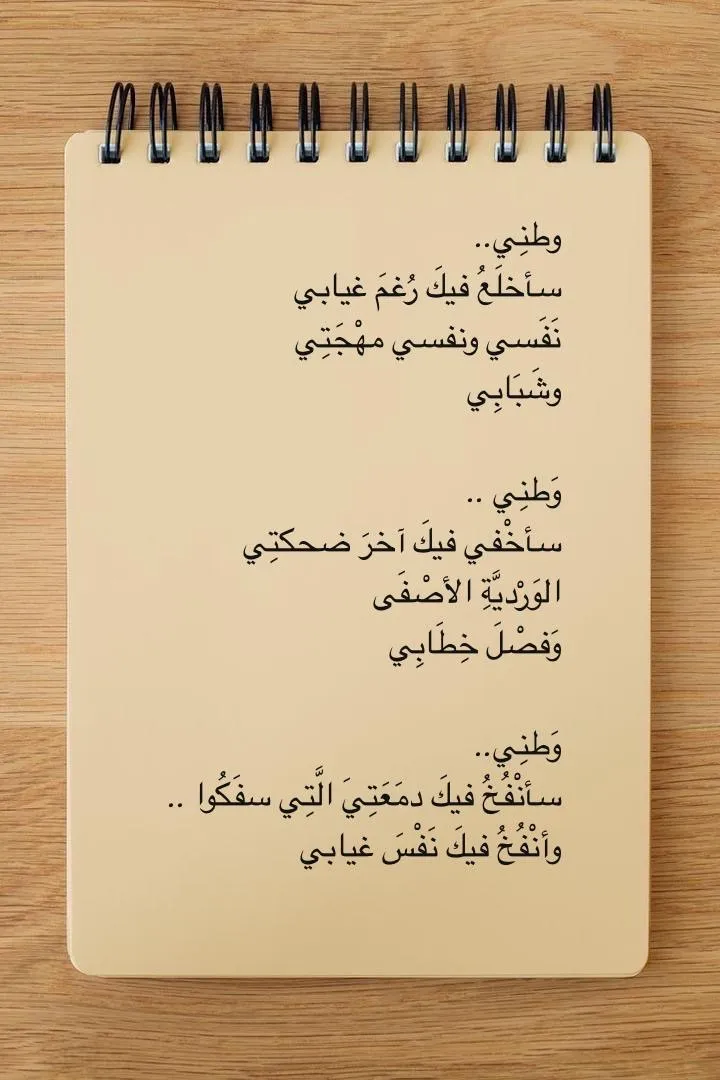 وطنِي..
سأخلَعُ فيكَ رُغمَ غيابي
نَفَسي ونفسي مهْجَتِي
وشَبَابِي
وَطنِي ..
سأخْفي فيكَ آخرَ ضحكتِي
الوَرْديَّةِ الأصْفَى
وَفصْلَ خِطَابِي
وَطنِي..
سأنْفُخُ فيكَ دمَعَتِيَ الَّتِي سفَكُوا ..
وأنْفُخُ فيكَ نَفْسَ غيابي